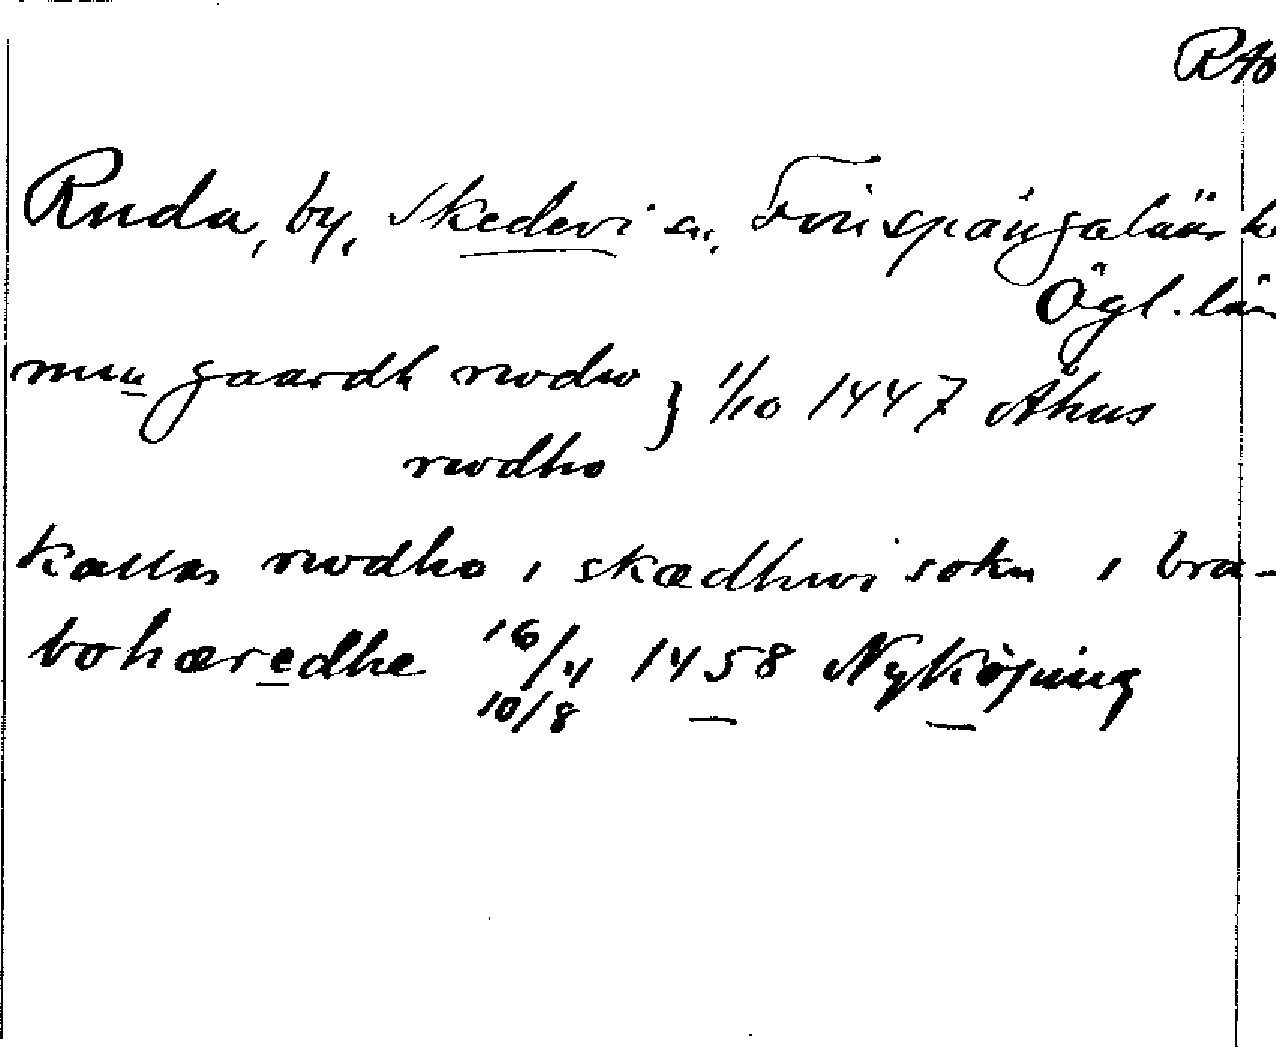 RAp
Ruda, by, Skedevi sn, Finspångaläns h
Ögl. län
min gaardh rwdho } 1/10 1447 Åhus
rwdho
kallas rwdho i skædhwi sokn i bra-
bohæredhe 16/4 1458 Nyköping
10/8 — —